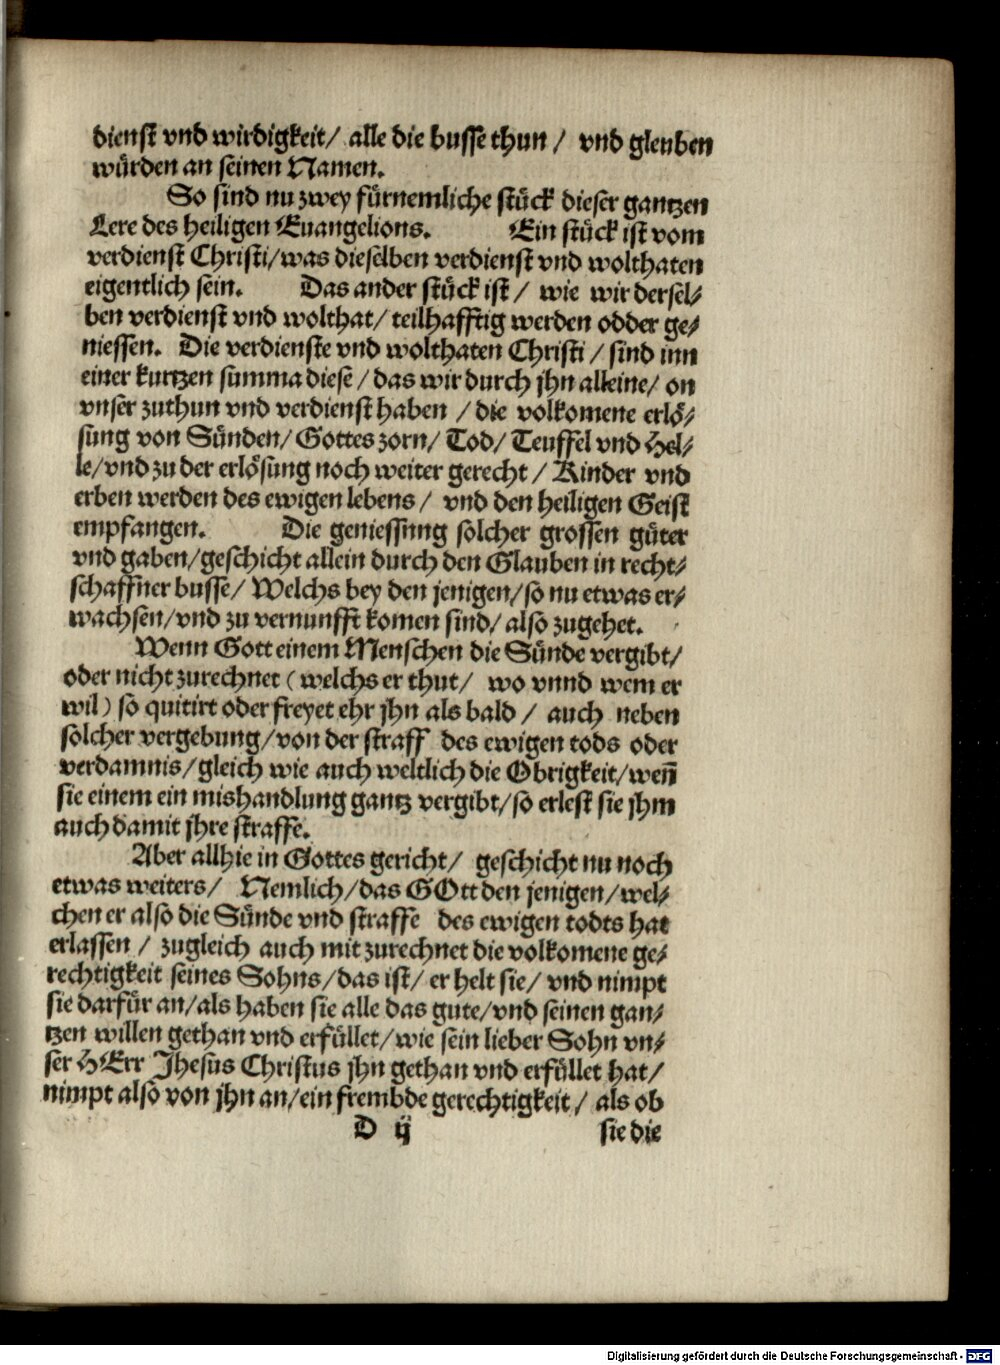 dienst vnd wirdigkeit/ alle die busse thun / vnd gleuben
würden an seinen Namen.
So sind nu zwey fürnemliche stück dieser gantzen
Lere des heiligen Euangelions. Ein stück ist vom
verdienst Christi/was dieselben verdienst vnd wolthaten
eigentlich sein. Das ander stück ist / wie wir dersel⸗
ben verdienst vnd wolthat/ teilhafftig werden odder ge⸗
niessen. Die verdienste vnd wolthaten Christi / sind inn
einer kurtzen summa diese / das wir durch jhn alleine/ on
vnser zuthun vnd verdienst haben / die volkomene erlö⸗
sung von Sünden/ Gottes zorn/ Tod/ Teuffel vnd Hel⸗
le/vnd zu der erlösung noch weiter gerecht / Kinder vnd
erben werden des ewigen lebens / vnd den heiligen Geist
empfangen. Die geniessung solcher grossen güter
vnd gaben/geschicht allein durch den Glauben in recht⸗
schaffner busse/ Welchs bey den jenigen/so nu etwas er⸗
wachsen/vnd zu vernunfft komen sind/ also zugehet.
Wenn Gott einem Menschen die Sünde vergibt/
oder nicht zurechnet (welchs er thut/ wo vnnd wem er
wil) so quitirt oder freyet ehr jhn als bald / auch neben
solcher vergebung/von der straff des ewigen tods oder
verdamnis/gleich wie auch weltlich die Obrigkeit/weñ
sie einem ein mishandlung gantz vergibt/so erlest sie jhm
auch damit jhre straffe.
Aber allhie in Gottes gericht/ geschicht nu noch
etwas weiters/ Nemlich/das GOtt den jenigen/wel⸗
chen er also die Sünde vnd straffe des ewigen todts hat
erlassen / zugleich auch mit zurechnet die volkomene ge⸗
rechtigkeit seines Sohns/das ist/ er helt sie/ vnd nimpt
sie darfür an/als haben sie alle das gute/vnd seinen gan⸗
tzen willen gethan vnd erfüllet/wie sein lieber Sohn vn⸗
ser HErr Jhesus Christus jhn gethan vnd erfüllet hat/
nimpt also von jhn an/ein frembde gerechtigkeit/ als ob
D ij sie die
Digitalisierung gefördert durch die Deutsche Forschungsgemeinschaft - DFG